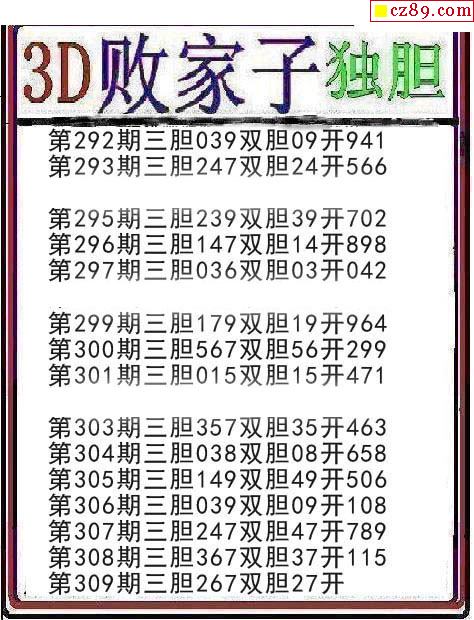 cz89.com
3D败家子独胆
第292期三胆039双胆09开941
第293期三胆247双胆24开566
第295期三胆239双胆39开702
第296期三胆147双胆14开898
第297期三胆036双胆03开042
第299期三胆179双胆19开964
第300期三胆567双胆56开299
第301期三胆015双胆15开471
第303期三胆357双胆35开463
第304期三胆038双胆08开658
第305期三胆149双胆49开506
第306期三胆039双胆09开108
第307期三胆247双胆47开789
第308期三胆367双胆37开115
第309期三胆267双胆27开